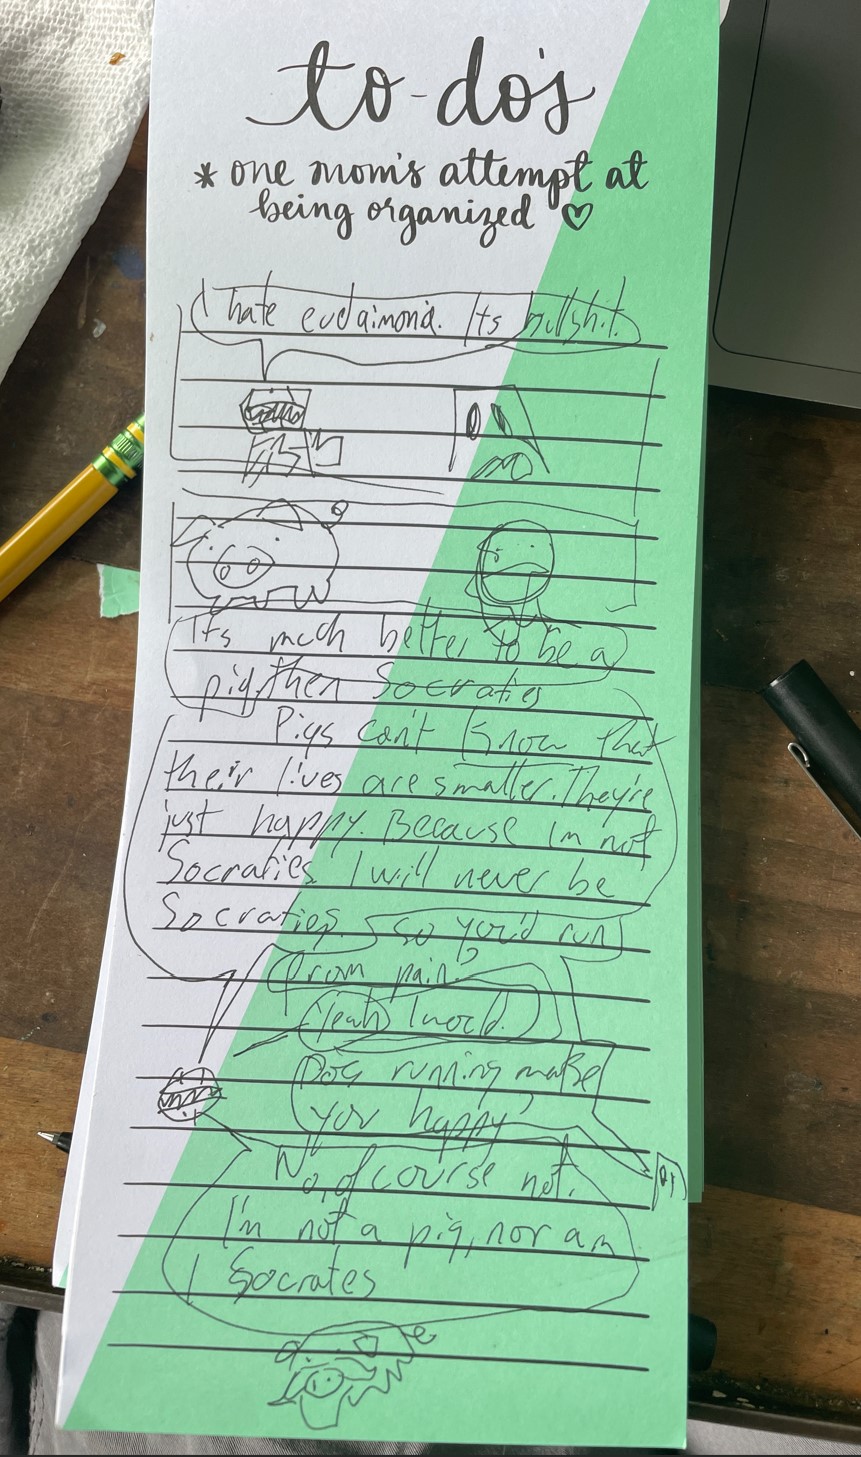 to-do's
* one mom's attempt at
being organized ♡
I hate eudaimonia. Its bullshit.
It's much better to be a
pig then Socraties
Pigs can't know that
their lives are smaller. They're
just happy. Because Im not
Socraties I will never be
Socraties. So you'd run
from pain?
Yeah I would.
Does running make
you happy?
No, of course not.
I'm not a pig, nor am
I Socrates